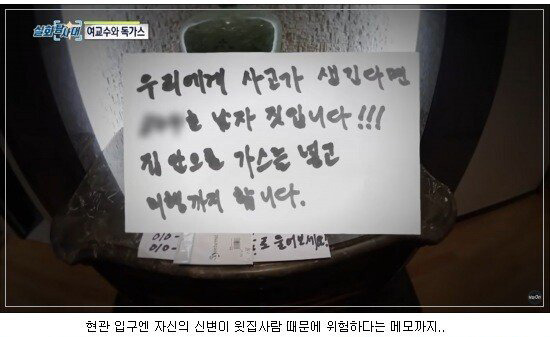 실화탐사대 여교수와 독가스
우리에게 사고가 생긴다면
남자 짓입니다!!!
집 안으로 가스는 넣고
미행까지 합니다.
010-
010- 로 물어보세요!
현관 입구엔 자신의 신변이 윗집사람 때문에 위험하다는 메모까지..